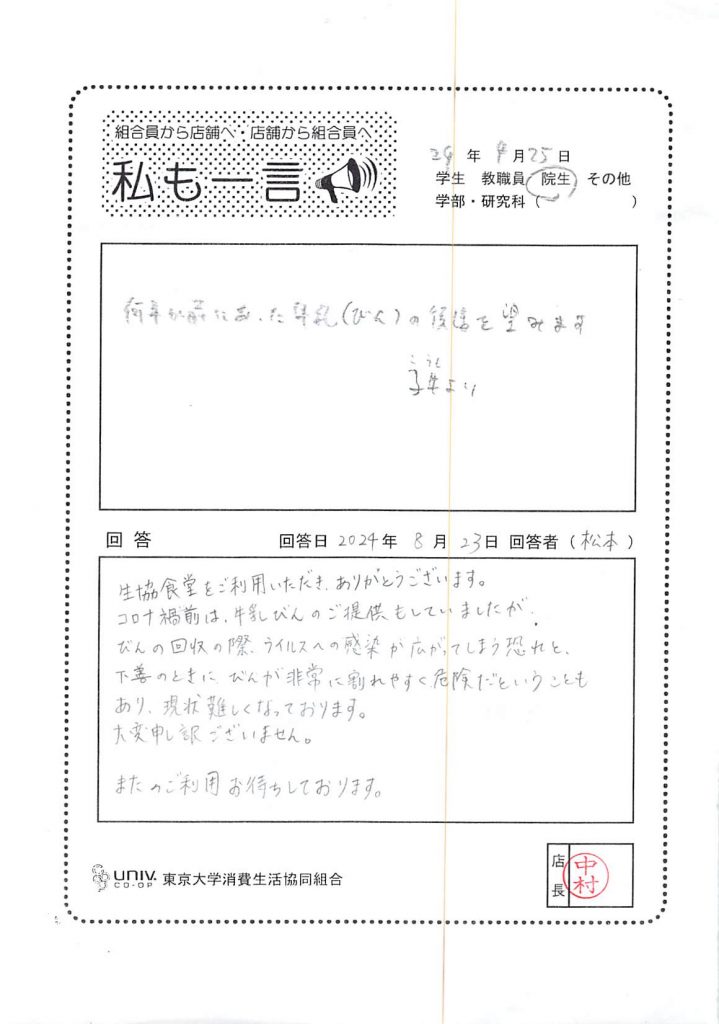 組合員から店舗へ・店舗から組合員へ
私も一言
24 年 月 25 日
学生 教職員 院生 その他
学部・研究科 ( )
何年か前にあった牛乳(びん)の復活を望みます
こうし
より
回 答 回答日 2024 年 8 月 23 日 回答者 ( 松本 )
生協食堂をご利用いただき、ありがとうございます。
コロナ禍前は、牛乳びんのご提供もしていましたが、
びんの回収の際、ウイルスへの感染が広がってしまう恐れと、
下膳のときに、びんが非常に割れやすく危険だということも
あり、現状難しくなっております。
大変申し訳ございません。
またのご利用お待ちしております。
UNIV. CO-OP 東京大学消費生活協同組合
店長 中村